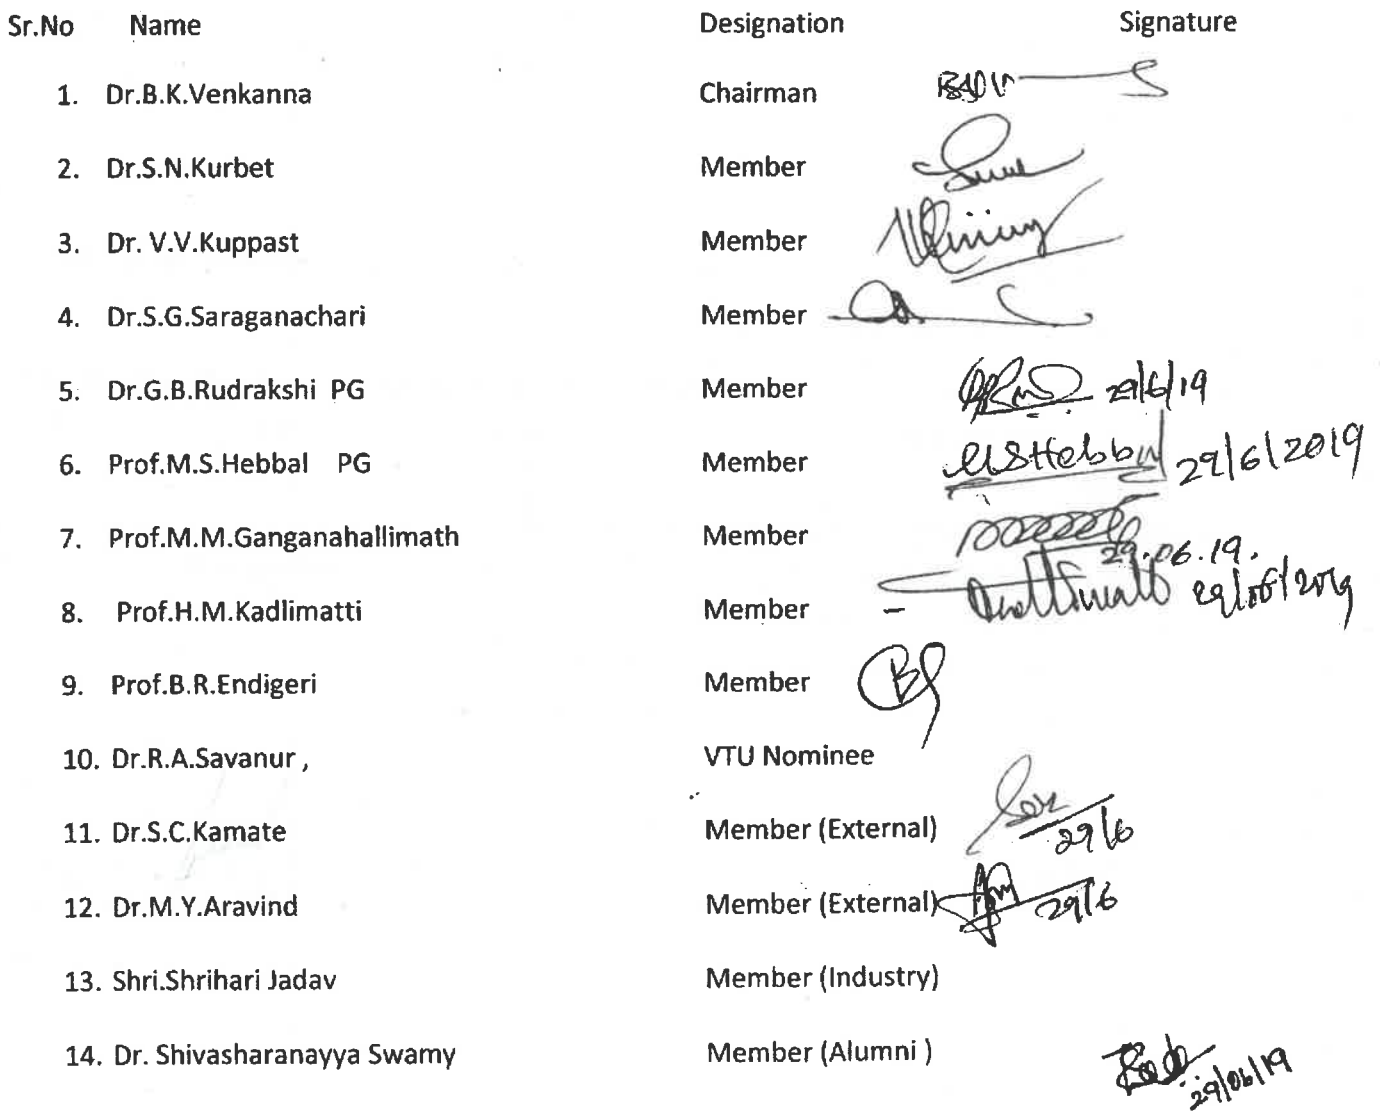 Sr.No Name Designation Signature
1. Dr.B.K.Venkanna Chairman
2. Dr.S.N.Kurbet Member
3. Dr. V.V.Kuppast Member
4. Dr.S.G.Saraganachari Member
5. Dr.G.B.Rudrakshi PG Member 29/6/19
6. Prof.M.S.Hebbal PG Member MSHebbal 29/6/2019
7. Prof.M.M.Ganganahallimath Member 29.06.19.
8. Prof.H.M.Kadlimatti Member 29/06/2019
9. Prof.B.R.Endigeri Member
10. Dr.R.A.Savanur , VTU Nominee
11. Dr.S.C.Kamate Member (External) 29/6
12. Dr.M.Y.Aravind Member (External) 29/6
13. Shri.Shrihari Jadav Member (Industry)
14. Dr. Shivasharanayya Swamy Member (Alumni ) 29/06/19